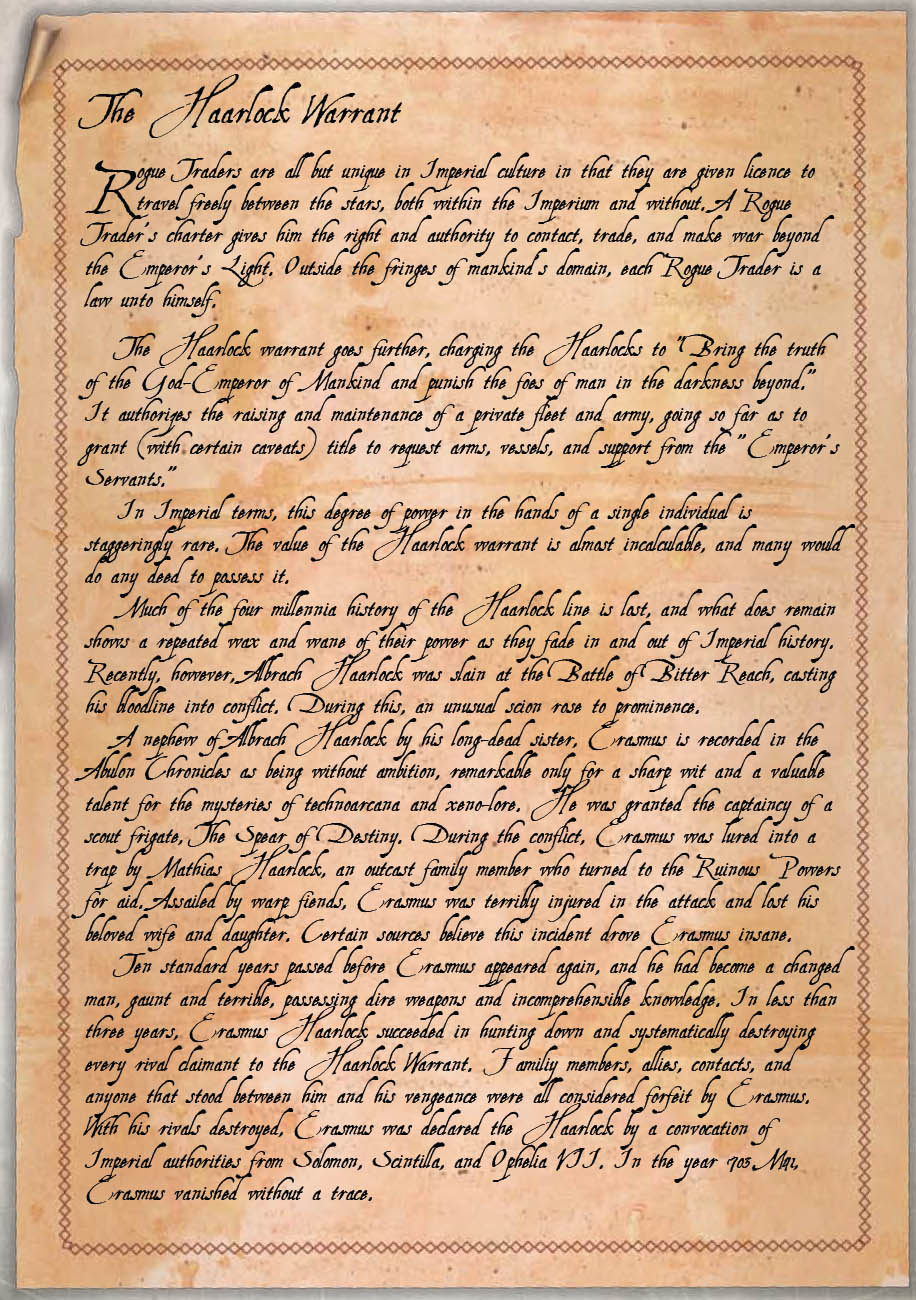 The Haarlock Warrant
Rogue Traders are all but unique in Imperial culture in that they are given licence to
travel freely between the stars, both within the Imperium and without. A Rogue
Trader's charter gives him the right and authority to contact, trade, and make war beyond
the Emperor's Light. Outside the fringes of mankind's domain, each Rogue Trader is a
law unto himself.
The Haarlock warrant goes further, charging the Haarlocks to "Bring the truth
of the God-Emperor of Mankind and punish the foes of man in the darkness beyond."
It authorizes the raising and maintenance of a private fleet and army, going so far as to
grant (with certain caveats) title to request arms, vessels, and support from the "Emperor's
Servants."
In Imperial terms, this degree of power in the hands of a single individual is
staggeringly rare. The value of the Haarlock warrant is almost incalculable, and many would
do any deed to possess it.
Much of the four millennia history of the Haarlock line is lost, and what does remain
shows a repeated wax and wane of their power as they fade in and out of Imperial history.
Recently, however, Albrach Haarlock was slain at the Battle of Bitter Reach, casting
his bloodline into conflict. During this, an unusual scion rose to prominence.
A nephew of Albrach Haarlock by his long-dead sister, Erasmus is recorded in the
Abulon Chronicles as being without ambition, remarkable only for a sharp wit and a valuable
talent for the mysteries of technoarcana and xeno-lore. He was granted the captaincy of a
scout frigate, The Spear of Destiny. During the conflict, Erasmus was lured into a
trap by Mathias Haarlock, an outcast family member who turned to the Ruinous Powers
for aid. Assailed by warp fiends, Erasmus was terribly injured in the attack and lost his
beloved wife and daughter. Certain sources believe this incident drove Erasmus insane.
Ten standard years passed before Erasmus appeared again, and he had become a changed
man, gaunt and terrible, possessing dire weapons and incomprehensible knowledge. In less than
three years, Erasmus Haarlock succeeded in hunting down and systematically destroying
every rival claimant to the Haarlock Warrant. Familiy members, allies, contacts, and
anyone that stood between him and his vengeance were all considered forfeit by Erasmus.
With his rivals destroyed, Erasmus was declared the Haarlock by a convocation of
Imperial authorities from Solomon, Scintilla, and Ophelia VII. In the year 703.M41,
Erasmus vanished without a trace.